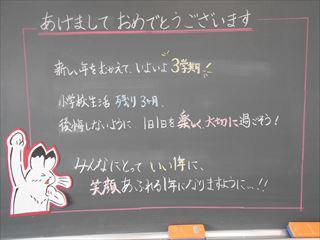 あけまして おめでとうございます
新しい年をむかえて、いよいよ3学期!
小学校生活 残り3ヶ月、
後悔しないように 1日1日を楽しく大切に過ごそう!
みんなにとって いい1年に、
笑顔あふれる1年になりますように…!!